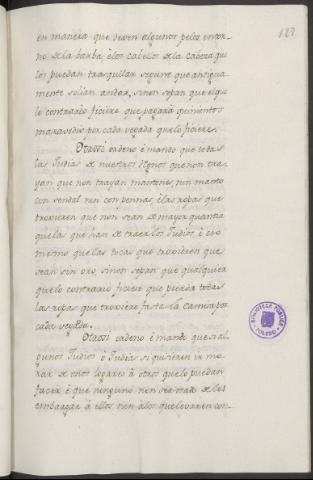 127
en manera que dexen algunos pelos en torno
no de la barba, è los cabellos de la cabeza que
los puedan trasquilar segunt que antigua-
mente solian andar, sinon sepan que el que
lo contrario ficiere que pagará quinientos
maravedis por cada vegada que lo ficiere.
Otrossi ordeno è mando que todas
las Judias de nuestros Regnos que non tra-
yan que non trayan mantones, nin manto
con sendal nin con pennas, è las ropas que
troxieren que non sean de mayor quantia
que las que han de traer los Judios, è eso
mesmo que las tocas que troxieren que
sean sin oro, sinon sepan que qualquiera
que lo contrario ficiere que pierda todas
las ropas que troxiere fasta la camisa por
cada vegada.
Otrossi ordeno è mando que si al-
gunos Judios ò Judias si quisieren ir mo-
rar de unos logares à otros que lo puedan
facer, è que ninguno non sea osado de les
embargar à ellos nin à los que levaren con-
BIBLIOTECA PUBLICA
TOLEDO